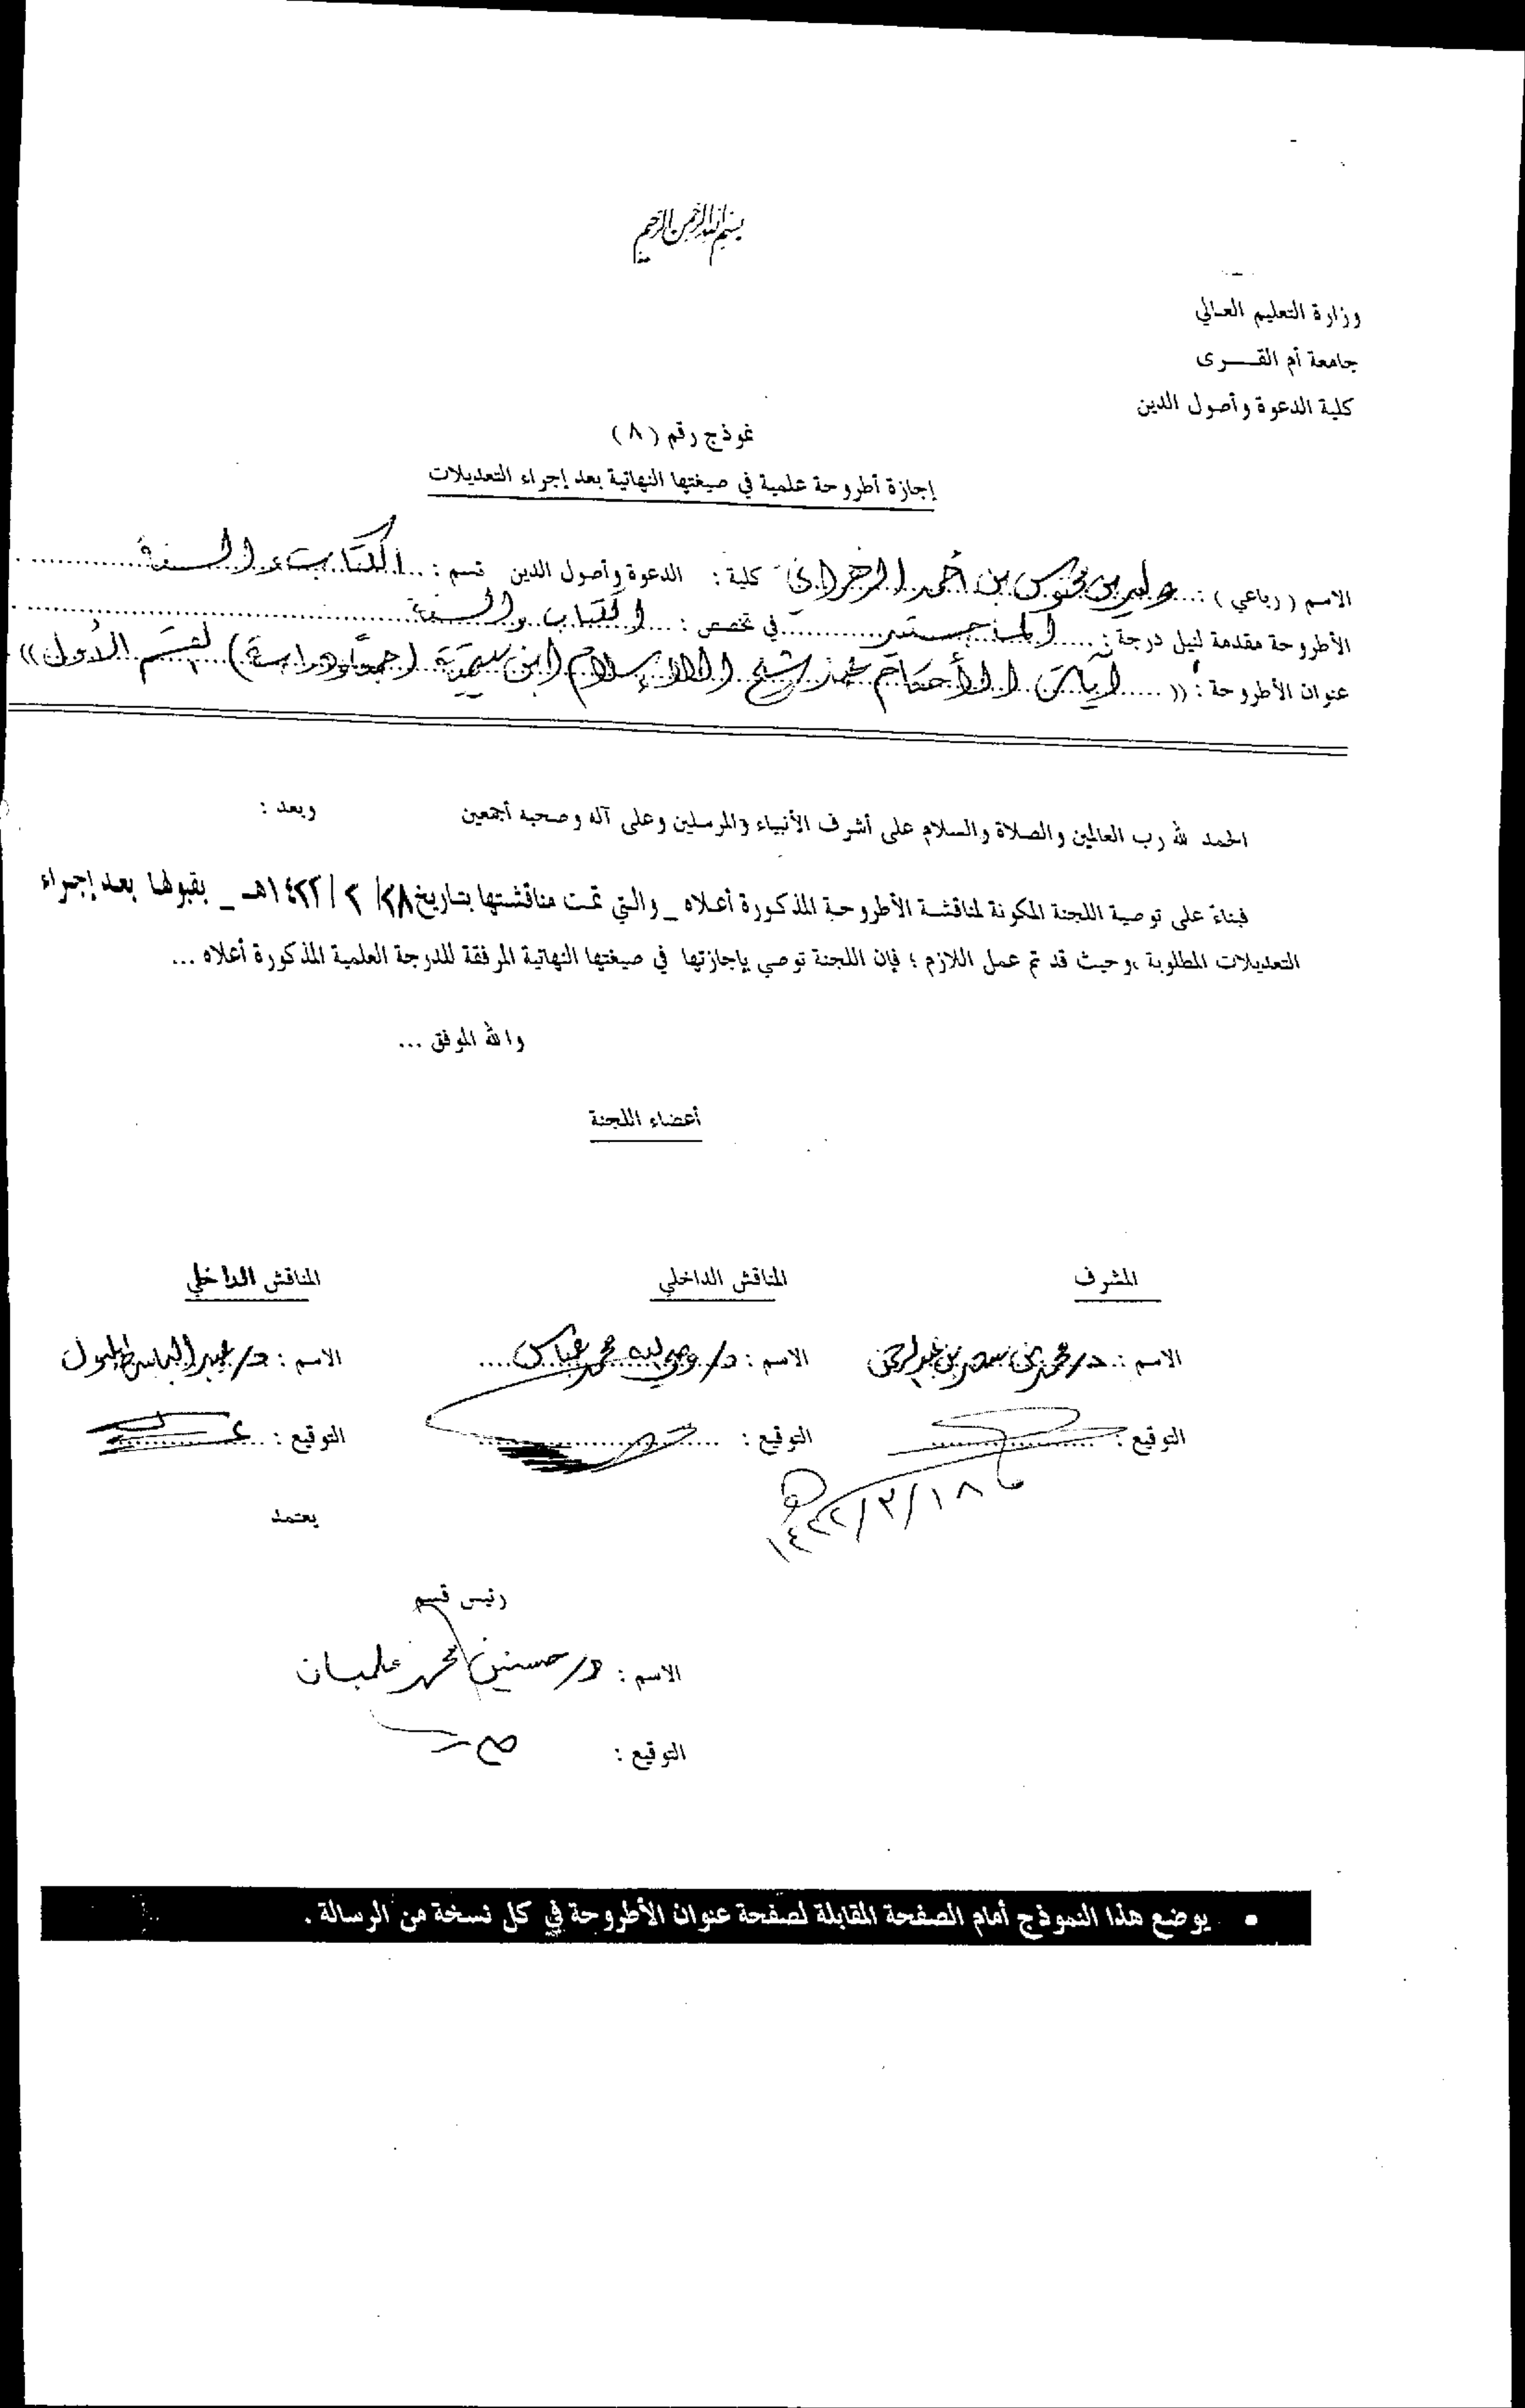 بسم الله الرحمن الرحيم
وزارة التعليم العالي
جامعة أم القــــرى
كلية الدعوة وأصول الدين
نموذج رقم ( ٨ )
إجازة أطروحة علمية في صيغتها النهائية بعد إجراء التعديلات
الاسم ( رباعي ) : وليد بن محتوس بن أحمد الزهراني كلية : الدعوة وأصول الدين قسم : الكتاب والسنة
الأطروحة مقدمة لنيل درجة : الماجستير في تخصص : الكتاب والسنة
عنوان الأطروحة : (( آيات الأحكام عند شيخ الإسلام ابن تيمية (جمعاً ودراسة) القسم الأول ))
الحمد لله رب العالمين والصلاة والسلام على أشرف الأنبياء والمرسلين وعلى آله وصحبه أجمعين وبعد :
فبناءً على توصية اللجنة المكونة لمناقشة الأطروحة المذكورة أعلاه _ والتي تمت مناقشتها بتاريخ ٢٨/ ٢ /١٤٢٢هـ _ بقبولها بعد إجراء
التعديلات المطلوبة ،وحيث قد تم عمل اللازم ؛ فإن اللجنة توصي بإجازتها في صيغتها النهائية المرفقة للدرجة العلمية المذكورة أعلاه ...
والله الموفق ...
أعضاء اللجنة
المشرف المناقش الداخلي المناقش الداخلي
الاسم : د/محمد بن سعد بن عبدالرحمن الاسم : د/وصي الله محمد عباس الاسم : د/عبدالباسط بلبول
التوقيع : التوقيع : التوقيع :
١٤٢٢/٣/١٨هـ
يعتمد
رئيس قسم
الاسم : د/حسنين محمد فلمبان
التوقيع :
▪ يوضع هذا النموذج أمام الصفحة المقابلة لصفحة عنوان الأطروحة في كل نسخة من الرسالة .